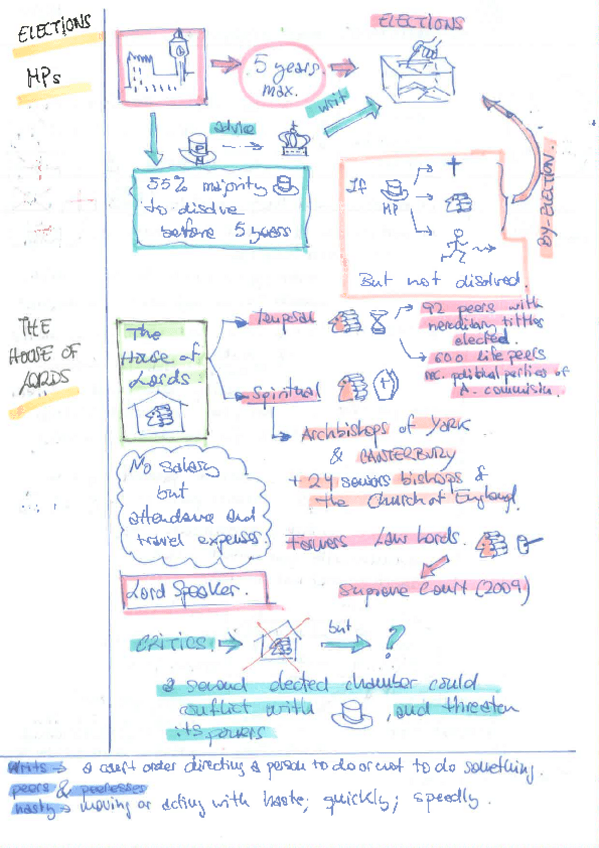 ELECTIONS
MPs
ELECTIONS
5 years
max.
writ
advice
55% majority
to disolve
before 5 years
If
MP
But not disolved.
BY-ELECTION.
THE
HOUSE OF
LORDS
The
House of
Lords.
temporal
92 peers with
hereditary tittles
elected.
600 life peers
political parties of
A. commision.
Spiritual
Archbishops of YORK
& CANTERBURY
+ 24 seniors bishops of
the Church of England.
No salary
but
attendance and
travel expenses.
Formers Law Lords.
Lord Speaker.
Supreme Court (2009)
CRITICS.
but
?
a second elected chamber could
conflict with , and threaten
its powers
Writs → a court order directing a person to do or not to do something.
peers & peeresses
hasty → moving or acting with haste; quickly; speedly.